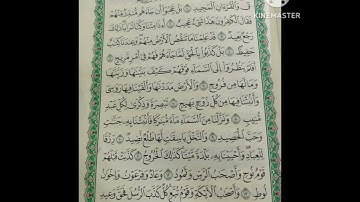 KINEMASTER
قٓ وَٱلْقُرْءَانِ ٱلْمَجِيدِ ١ بَلْ عَجِبُوٓا۟ أَن جَآءَهُم مُّنذِرٌ مِّنْهُمْ
فَقَالَ ٱلْكَٰفِرُونَ هَٰذَا شَىْءٌ عَجِيبٌ ٢ أَءِذَا مِتْنَا وَكُنَّا تُرَابًا ذَٰلِكَ
رَجْعٌۢ بَعِيدٌ ٣ قَدْ عَلِمْنَا مَا تَنقُصُ ٱلْأَرْضُ مِنْهُمْ وَعِندَنَا كِتَٰبٌ
حَفِيظٌۢ ٤ بَلْ كَذَّبُوا۟ بِٱلْحَقِّ لَمَّا جَآءَهُمْ فَهُمْ فِىٓ أَمْرٍ مَّرِيجٍ ٥
أَفَلَمْ يَنظُرُوٓا۟ إِلَى ٱلسَّمَآءِ فَوْقَهُمْ كَيْفَ بَنَيْنَٰهَا وَزَيَّنَّٰهَا
وَمَا لَهَا مِن فُرُوجٍ ٦ وَٱلْأَرْضَ مَدَدْنَٰهَا وَأَلْقَيْنَا فِيهَا رَوَٰسِىَ
وَأَنۢبَتْنَا فِيهَا مِن كُلِّ زَوْجٍۭ بَهِيجٍ ٧ تَبْصِرَةً وَذِكْرَىٰ لِكُلِّ عَبْدٍ
مُّنِيبٍ ٨ وَنَزَّلْنَا مِنَ ٱلسَّمَآءِ مَآءً مُّبَٰرَكًا فَأَنۢبَتْنَا بِهِۦ جَنَّٰتٍ
وَحَبَّ ٱلْحَصِيدِ ٩ وَٱلنَّخْلَ بَاسِقَٰتٍ لَّهَا طَلْعٌ نَّضِيدٌ ١٠ رِّزْقًا
لِّلْعِبَادِ وَأَحْيَيْنَا بِهِۦ بَلْدَةً مَّيْتًا كَذَٰلِكَ ٱلْخُرُوجُ ١١ كَذَّبَتْ قَبْلَهُمْ
قَوْمُ نُوحٍ وَأَصْحَٰبُ ٱلرَّسِّ وَثَمُودُ ١٢ وَعَادٌ وَفِرْعَوْنُ وَإِخْوَٰنُ
لُوطٍ ١٣ وَأَصْحَٰبُ ٱلْأَيْكَةِ وَقَوْمُ تُبَّعٍ كُلٌّ كَذَّبَ ٱلرُّسُلَ فَحَقَّ وَعِيدِ